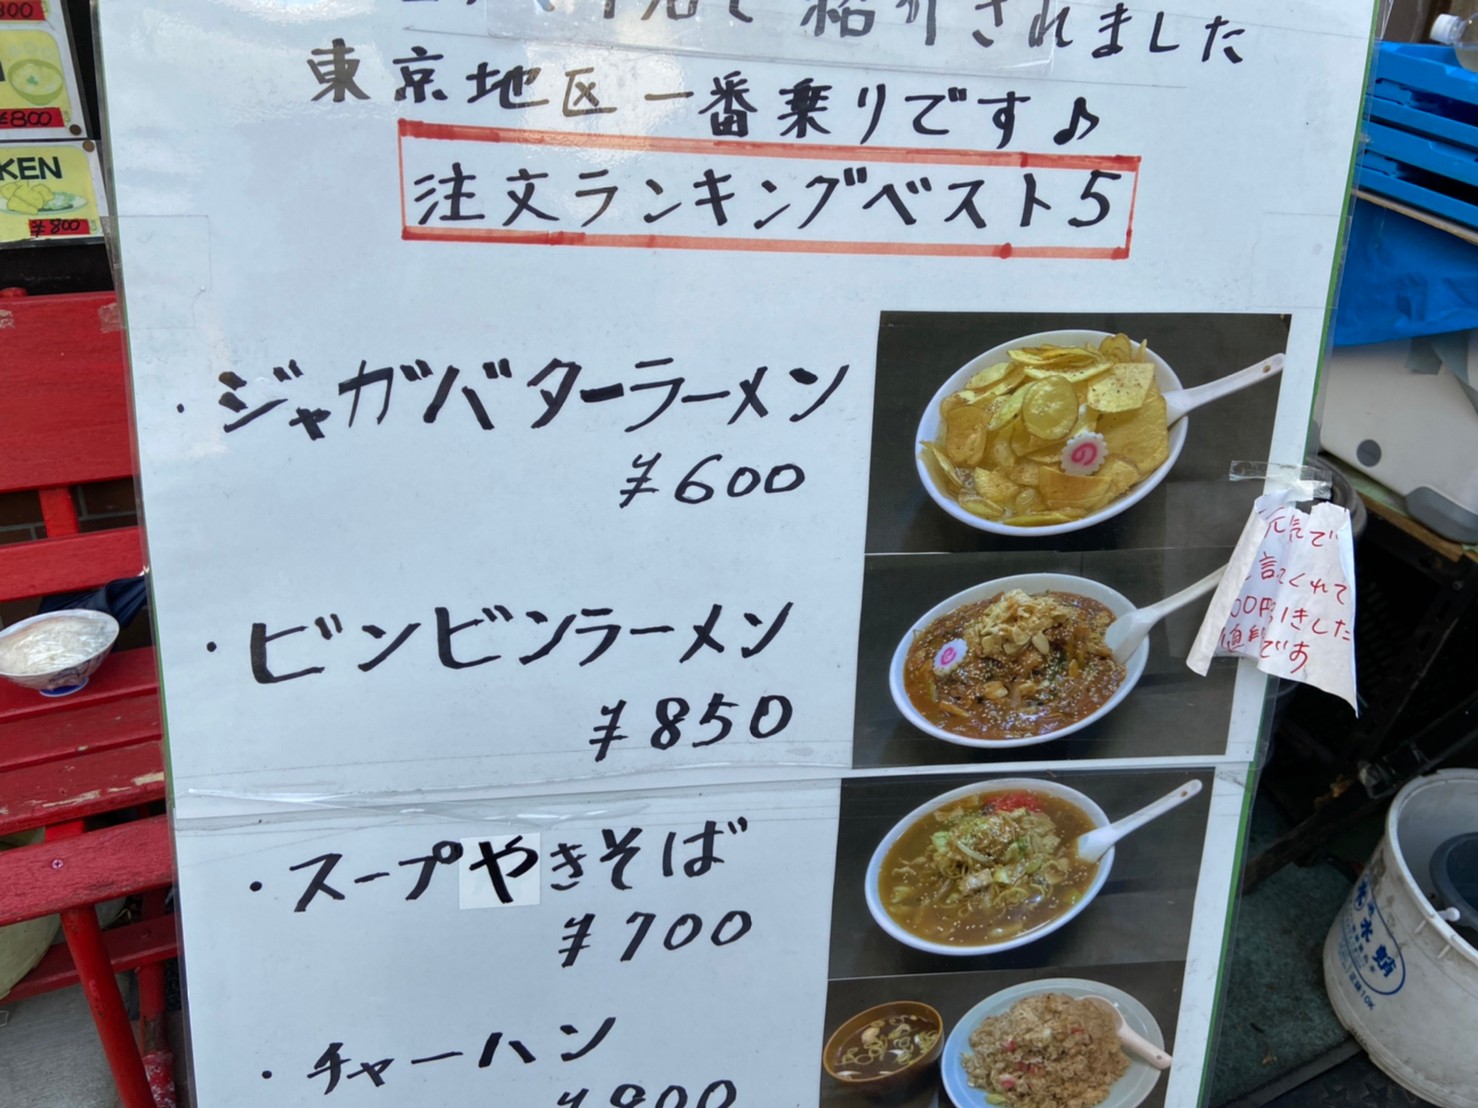 紹介されました
東京地区一番乗りです♪
注文ランキングベスト5
・ジャガバターラーメン
¥600
・ビンビンラーメン
¥850
・スープやきそば
¥700
・チャーハン
¥800
KEN
¥800
元気で
言てくれて
00円引きした
値段です